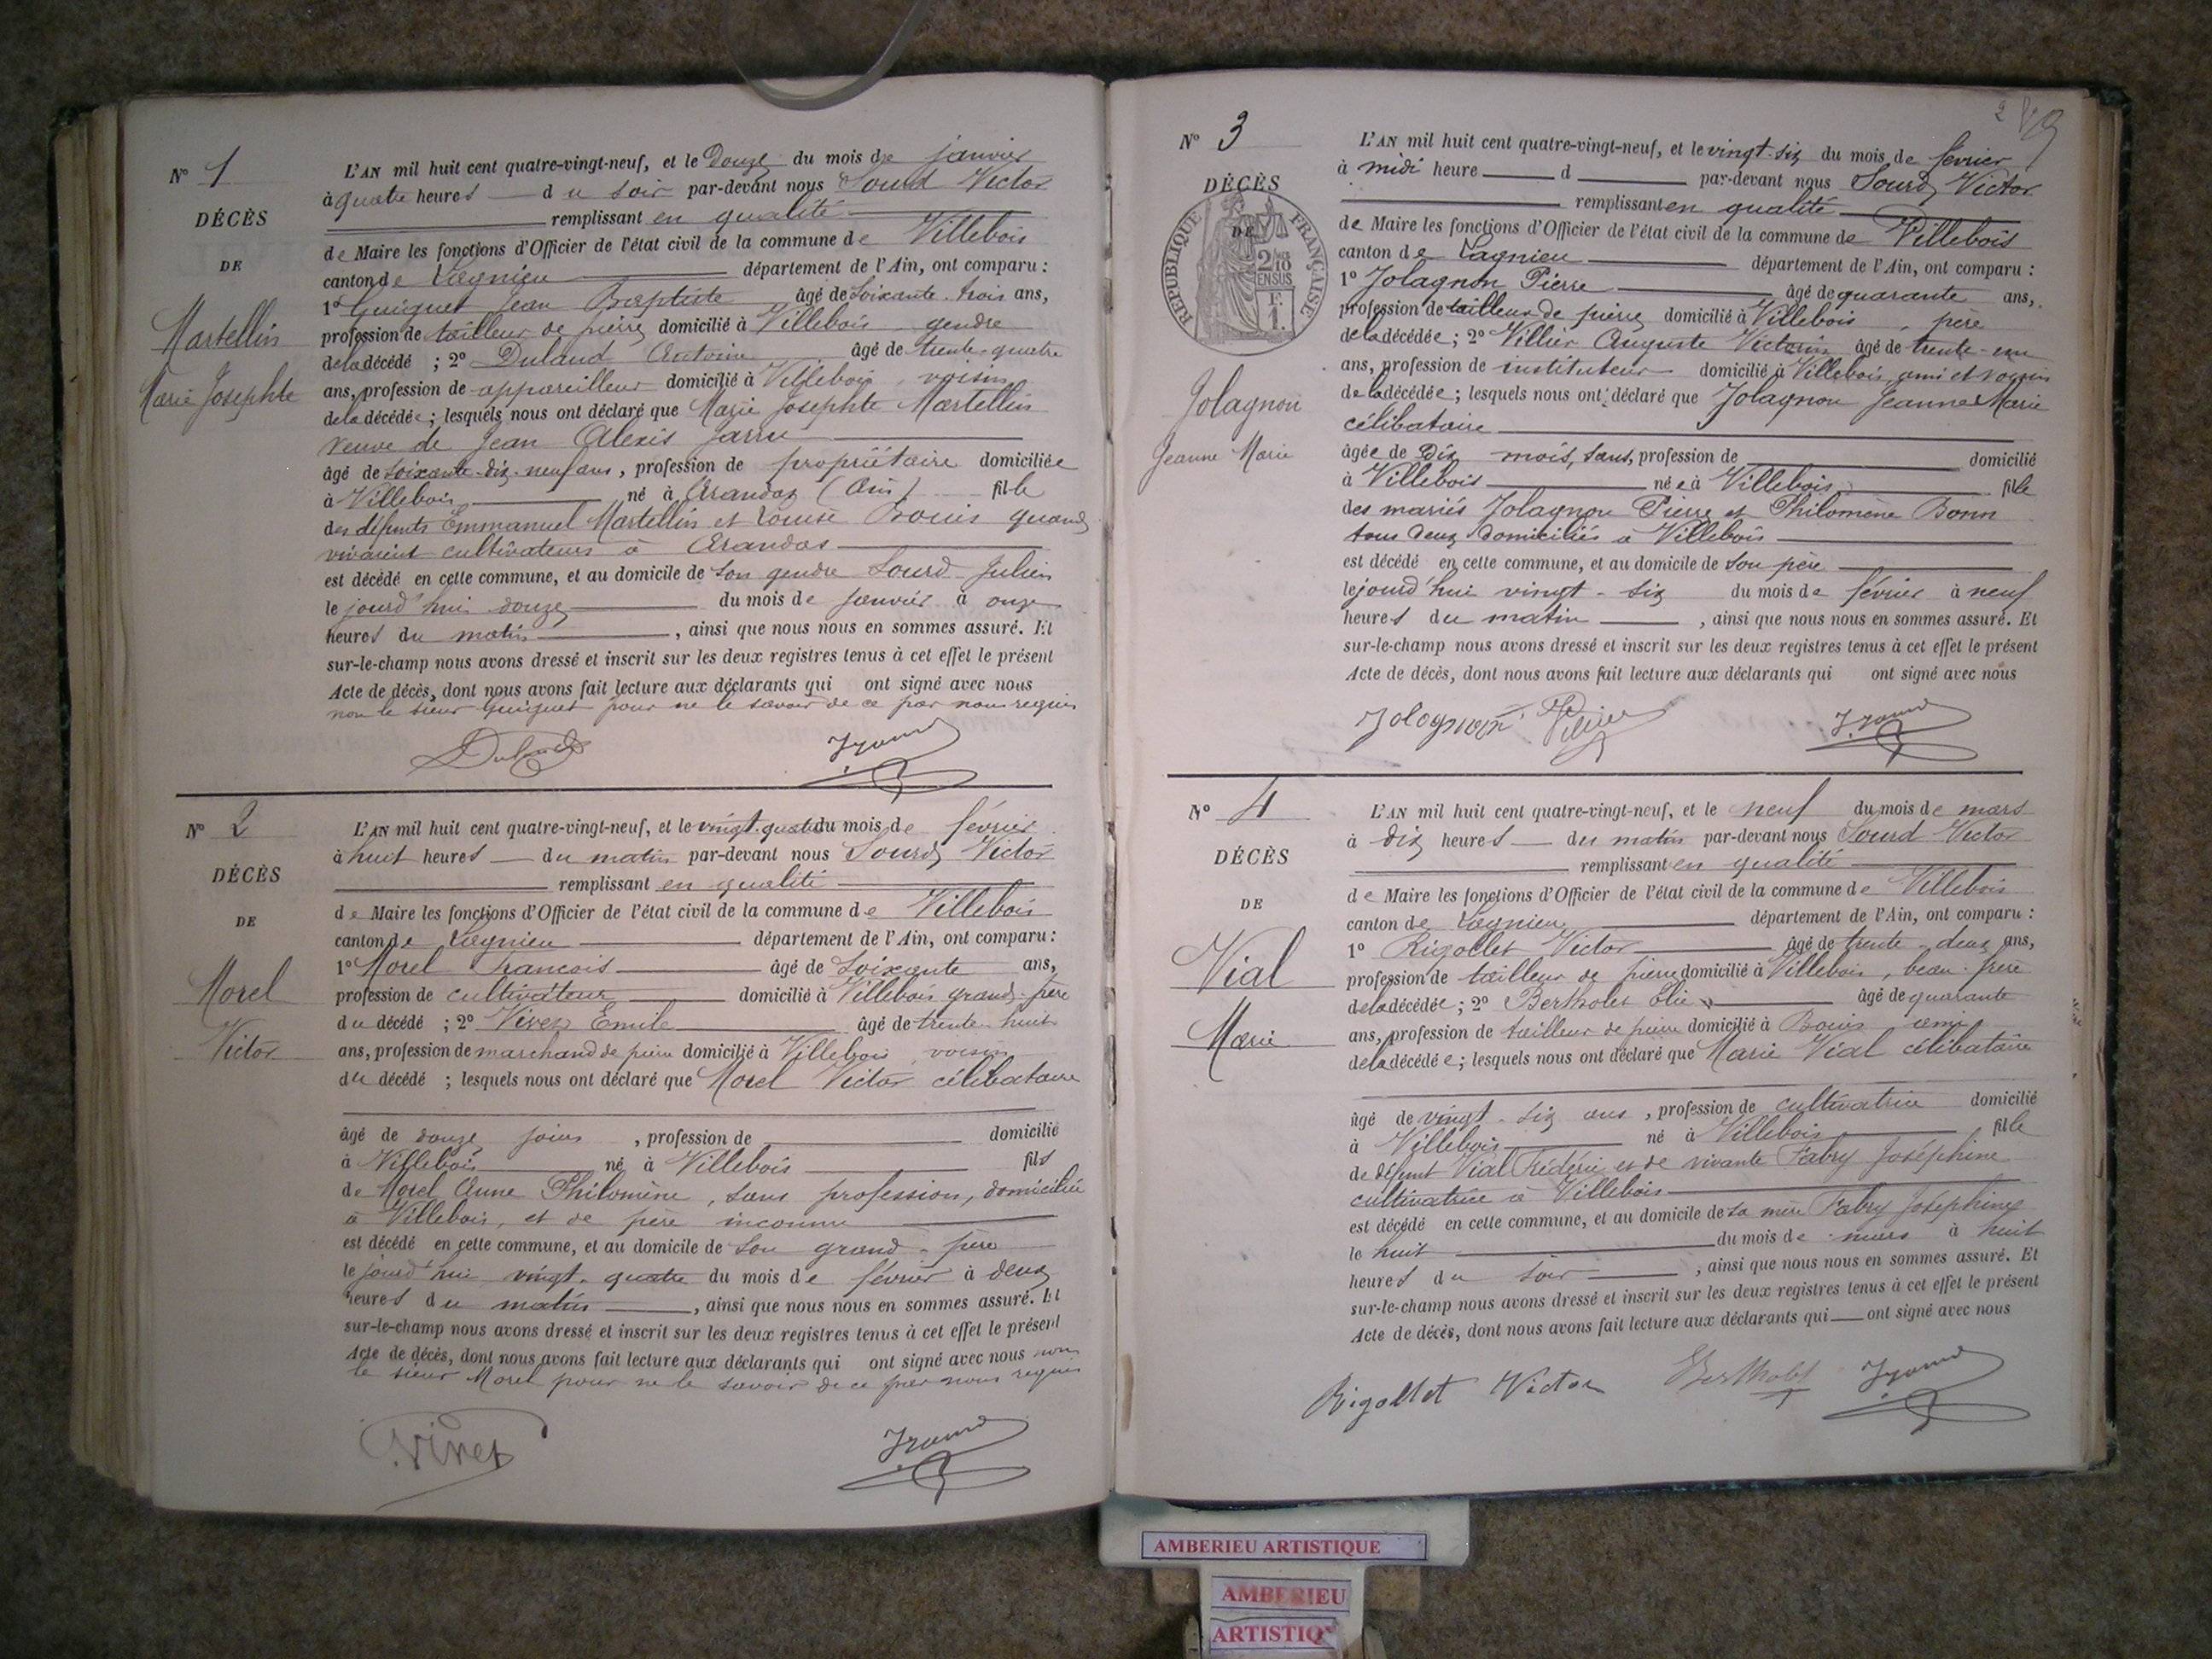 N° 1
DÉCÈS
DE
Martellin
Marie Josephte
L'AN mil huit cent quatre-vingt-neuf, et le Douze du mois de janvier
à quatre heures du soir par-devant nous Sourd Victor
remplissant en qualité
de Maire les fonctions d'Officier de l'état civil de la commune de Villebois
canton de Lagnieu département de l'Ain, ont comparu :
1° Guiguet Jean Baptiste âgé de soixante-trois ans,
profession de tailleur de pierre domicilié à Villebois gendre
de la décédé ; 2° Dulaud Antoine âgé de trente-quatre
ans, profession de appareilleur domicilié à Villebois, voisin
de la décédée ; lesquels nous ont déclaré que Marie Josephte Martellin
veuve de Jean Alexis Jarru
âgé de soixante-dix-neuf ans, profession de propriétaire domiciliée
à Villebois né à Arandas (Ain) fille
des défunts Emmanuel Martellin et Louise Bouis quand
vivaient cultivateurs à Arandas
est décédé en cette commune, et au domicile de son gendre Sourd Julien
le jourd'hui douze du mois de janvier à onze
heures du matin, ainsi que nous nous en sommes assuré. Et
sur-le-champ nous avons dressé et inscrit sur les deux registres tenus à cet effet le présent
Acte de décès, dont nous avons fait lecture aux déclarants qui ont signé avec nous
non le sieur Guiguet pour ne le savoir de ce par nous requis
N° 2
DÉCÈS
DE
Morel
Victor
L'AN mil huit cent quatre-vingt-neuf, et le vingt-quatre du mois de février
à huit heures du matin par-devant nous Sourd Victor
remplissant en qualité
de Maire les fonctions d'Officier de l'état civil de la commune de Villebois
canton de Lagnieu département de l'Ain, ont comparu :
1° Morel Francois âgé de soixante ans,
profession de cultivateur domicilié à Villebois grand-père
du décédé ; 2° Viver Emile âgé de trente-huit
ans, profession de marchand de pierre domicilié à Villebois voisin
du décédé ; lesquels nous ont déclaré que Morel Victor célibataire
âgé de douze jours, profession de domicilié
à Villebois né à Villebois fils
de Morel Anne Philomène, sans profession, domiciliée
à Villebois, et de père inconnu
est décédé en cette commune, et au domicile de son grand-père
le jourd'hui vingt-quatre du mois de février à deux
heures du matin, ainsi que nous nous en sommes assuré. Et
sur-le-champ nous avons dressé et inscrit sur les deux registres tenus à cet effet le présent
Acte de décès, dont nous avons fait lecture aux déclarants qui ont signé avec nous non
le sieur Morel pour ne le savoir de ce par nous requis
N° 3
DÉCÈS
DE
RÉPUBLIQUE FRANÇAISE
2/10 EN SUS
F. 1.
Jolagnon
Jeanne Marie
L'AN mil huit cent quatre-vingt-neuf, et le vingt-six du mois de février
à midi heure d par-devant nous Sourd Victor
remplissant en qualité
de Maire les fonctions d'Officier de l'état civil de la commune de Villebois
canton de Lagnieu département de l'Ain, ont comparu :
1° Jolagnon Pierre âgé de quarante ans,
profession de tailleur de pierre domicilié à Villebois, père
de la décédée ; 2° Villier Auguste Victorin âgé de trente-un
ans, profession de instituteur domicilié à Villebois ami et voisin
de la décédée ; lesquels nous ont déclaré que Jolagnon Jeanne Marie
célibataire
âgée de Dix mois, sans, profession de domicilié
à Villebois née à Villebois fille
des mariés Jolagnon Pierre et Philomène Bonn
tous deux domiciliés à Villebois
est décédé en cette commune, et au domicile de son père
le jourd'hui vingt-six du mois de février à neuf
heures du matin, ainsi que nous nous en sommes assuré. Et
sur-le-champ nous avons dressé et inscrit sur les deux registres tenus à cet effet le présent
Acte de décès, dont nous avons fait lecture aux déclarants qui ont signé avec nous
Jolagnon
N° 4
DÉCÈS
DE
Vial
Marie
L'AN mil huit cent quatre-vingt-neuf, et le neuf du mois de mars
à dix heures du matin par-devant nous Sourd Victor
remplissant en qualité
de Maire les fonctions d'Officier de l'état civil de la commune de Villebois
canton de Lagnieu département de l'Ain, ont comparu :
1° Rigollet Victor âgé de trente-deux ans,
profession de tailleur de pierre domicilié à Villebois, beau-frère
de la décédée ; 2° Bertholet Elie âgé de quarante
ans, profession de tailleur de pierre domicilié à Bouis ami
de la décédée ; lesquels nous ont déclaré que Marie Vial célibataire
âgé de vingt-six ans, profession de cultivatrice domicilié
à Villebois né à Villebois fille
de défunt Vial Frédéric et de vivante Fabry Joséphine
cultivatrice à Villebois
est décédé en cette commune, et au domicile de sa mère Fabry Joséphine
le huit du mois de mars à huit
heures du soir, ainsi que nous nous en sommes assuré. Et
sur-le-champ nous avons dressé et inscrit sur les deux registres tenus à cet effet le présent
Acte de décès, dont nous avons fait lecture aux déclarants qui ont signé avec nous
Rigollet Victor Bertholet
AMBERIEU ARTISTIQUE
AMBERIEU
ARTISTIQ